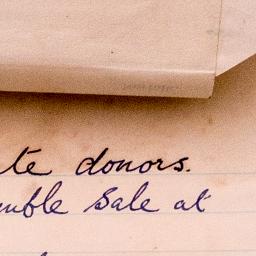 te donors.
umble Sale at